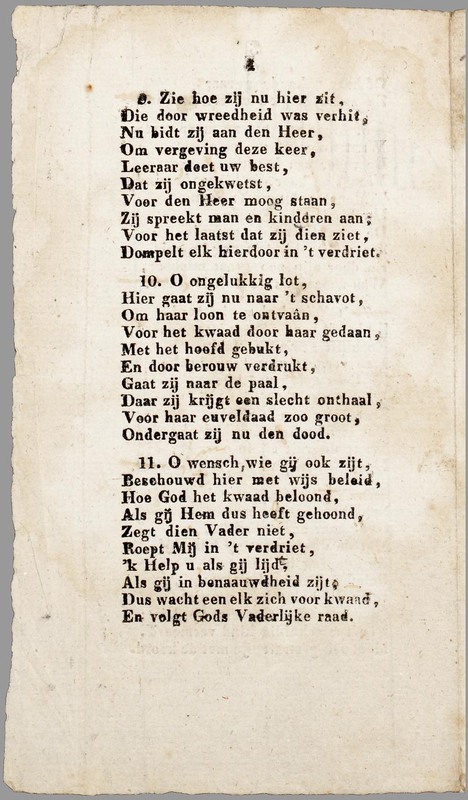 4
9. Zie hoe zij nu hier zit,
Die door wreedheid was verhit,
Nu bidt zij aan den Heer,
Om vergeving deze keer,
Leeraar doet uw best,
Dat zij ongekwetst,
Voor den Heer moog staan,
Zij spreekt man en kinderen aan;
Voor het laatst dat zij dien ziet,
Dompelt elk hierdoor in 't verdriet.
10. O ongelukkig lot,
Hier gaat zij nu naar 't schavot,
Om haar loon te ontvaân,
Voor het kwaad door haar gedaan,
Met het hoofd gebukt,
En door berouw verdrukt,
Gaat zij naar de paal,
Daar zij krijgt een slecht onthaal,
Voor haar euveldaad zoo groot,
Ondergaat zij nu den dood.
11. O wensch, wie gij ook zijt,
Beschouwd hier met wijs beleid,
Hoe God het kwaad beloond,
Als gij Hem dus heeft gehoond,
Zegt dien Vader niet,
Roept Mij in 't verdriet,
'k Help u als gij lijdt,
Als gij in benaauwdheid zijt;
Dus wacht een elk zich voor kwaad,
En volgt Gods Vaderlijke raad.